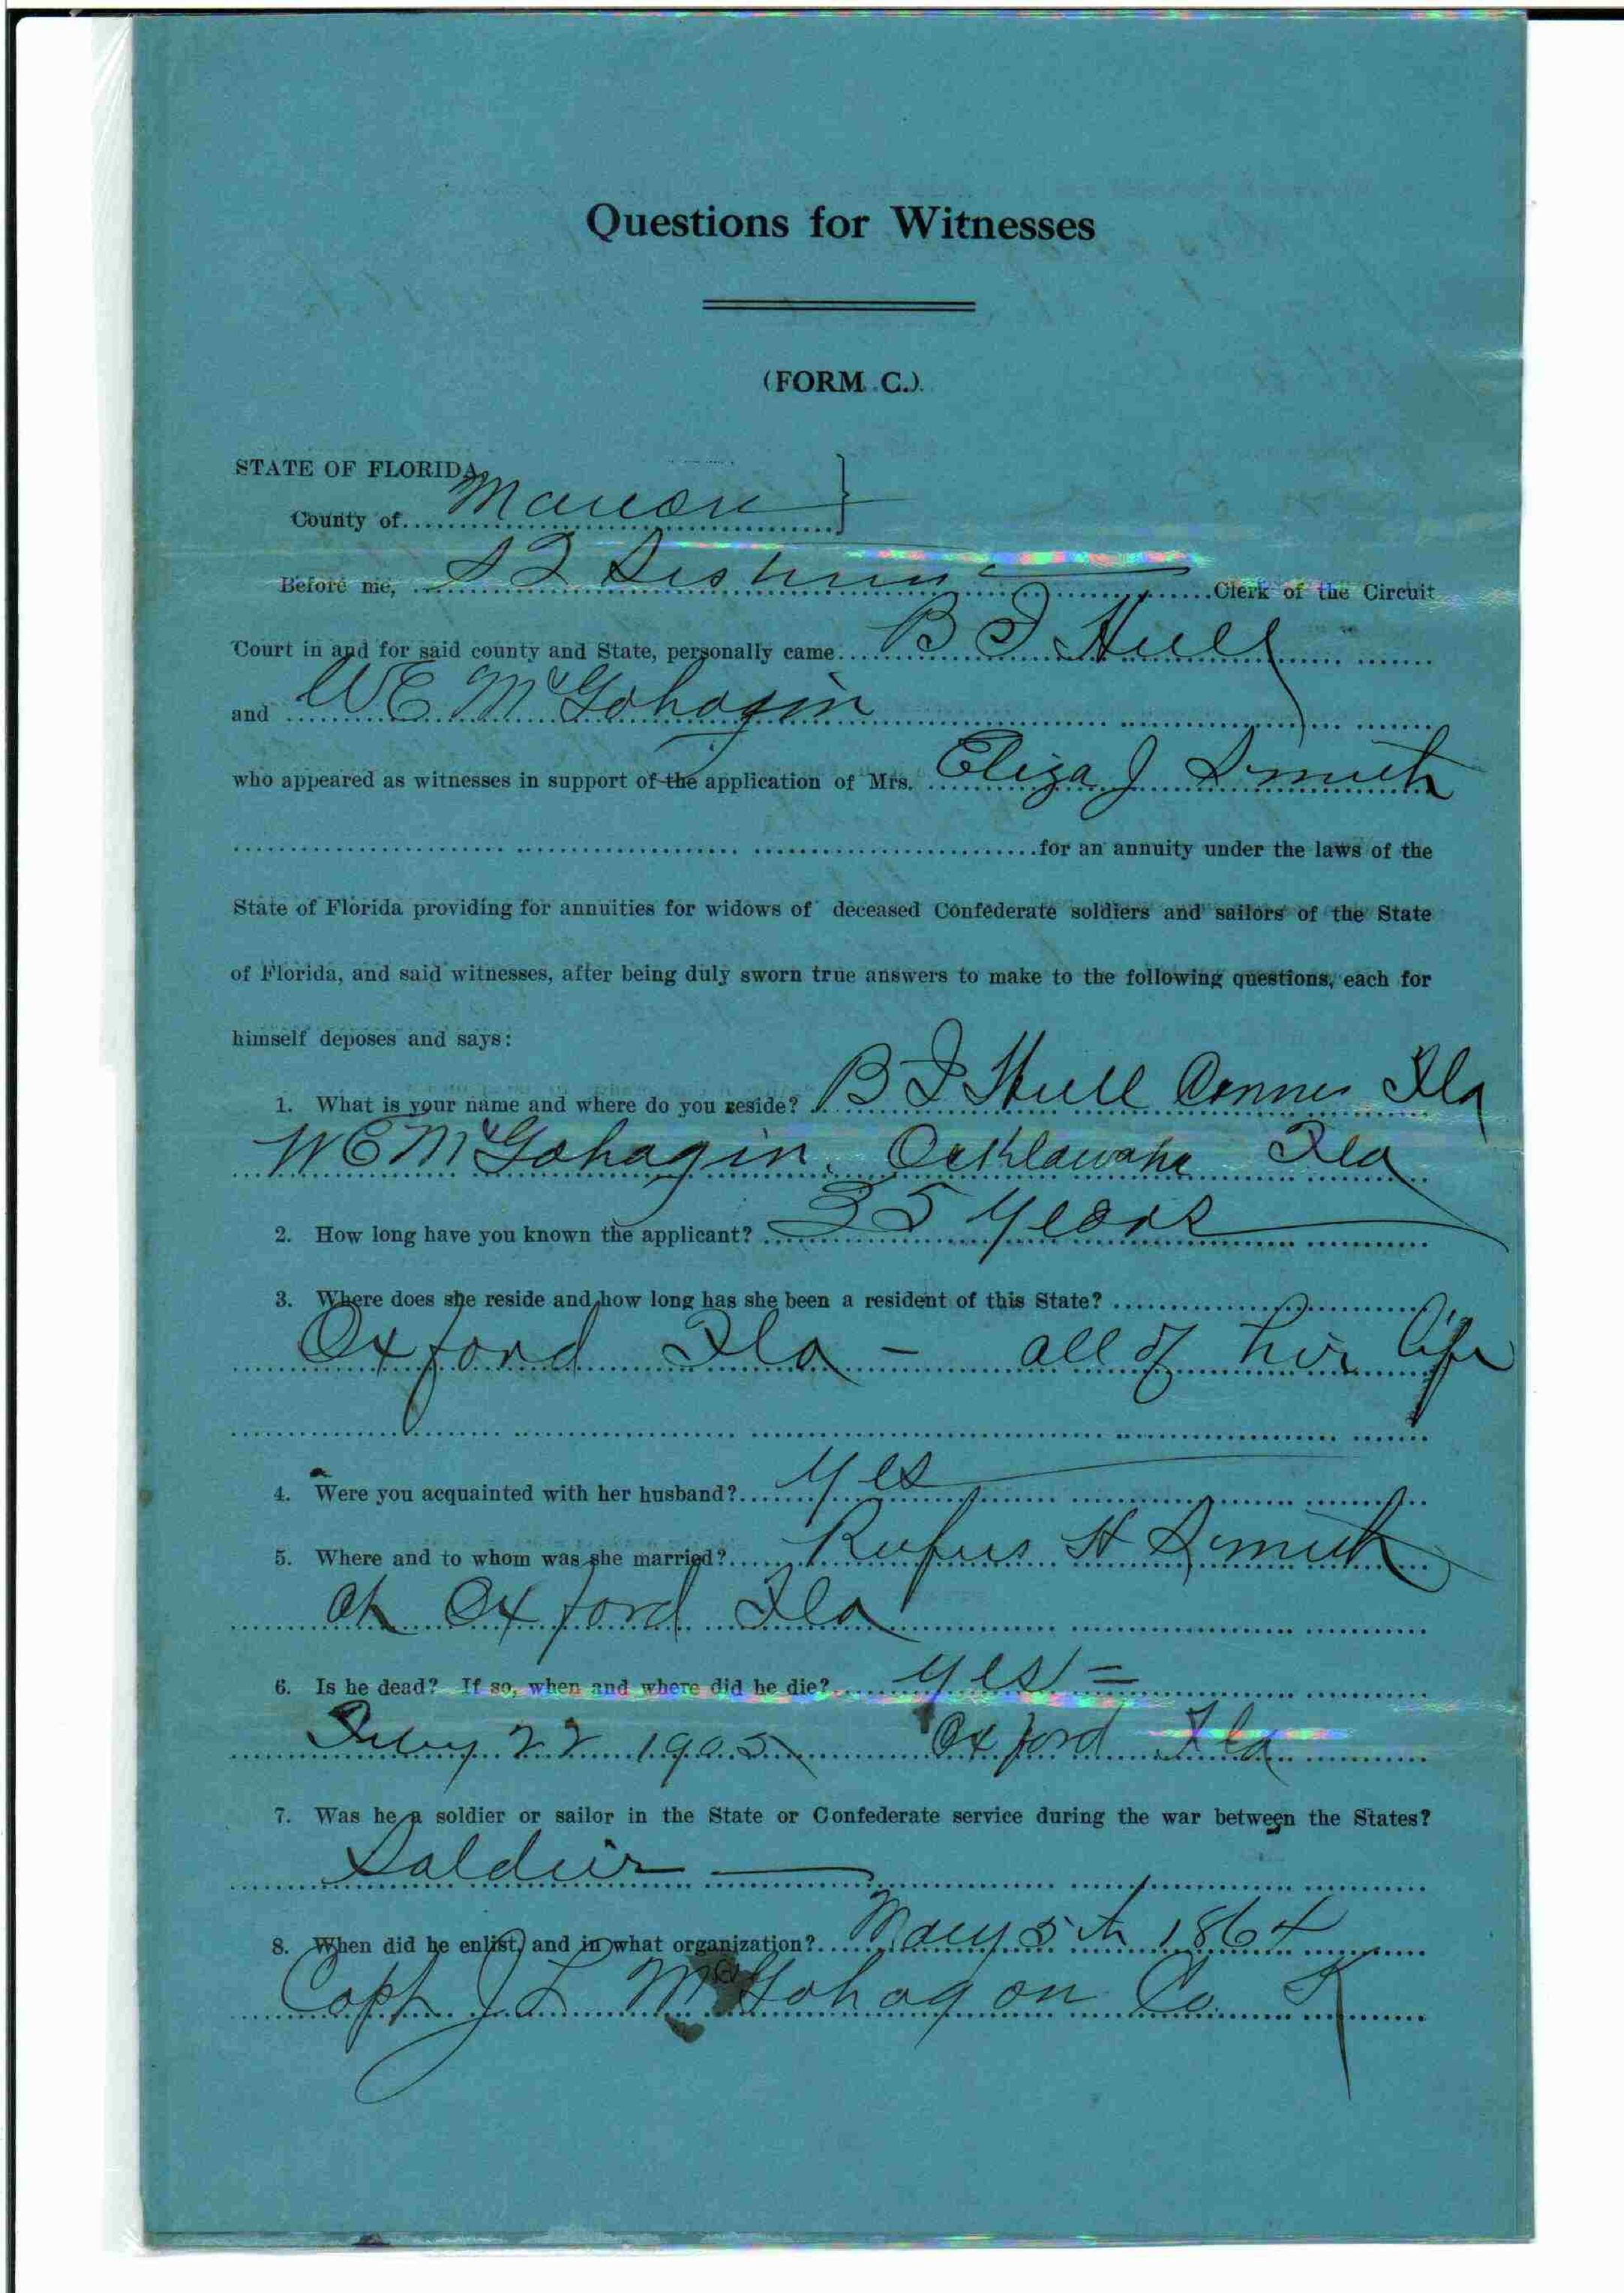 Questions for Witnesses
(FORM C.)
STATE OF FLORIDA,
County of Marion
Before me, Clerk of the Circuit
Court in and for said county and State, personally came B F Hull
and W E McGahagin
who appeared as witnesses in support of the application of Mrs. Eliza J Smith
for an annuity under the laws of the
State of Florida providing for annuities for widows of deceased Confederate soldiers and sailors of the State
of Florida, and said witnesses, after being duly sworn true answers to make to the following questions, each for
himself deposes and says:
1. What is your name and where do you reside? B F Hull Conner Fla
W E McGahagin Ocklawaha Fla
2. How long have you known the applicant? 35 years
3. Where does she reside and how long has she been a resident of this State?
Oxford Fla - all of her life
4. Were you acquainted with her husband? yes
5. Where and to whom was she married? Rufus H Smith
at Oxford Fla
6. Is he dead? If so, when and where did he die? yes =
22 1905 Oxford Fla
7. Was he a soldier or sailor in the State or Confederate service during the war between the States?
Soldier
8. When did he enlist, and in what organization? May 5th 1864
Capt J L McGahagon Co K